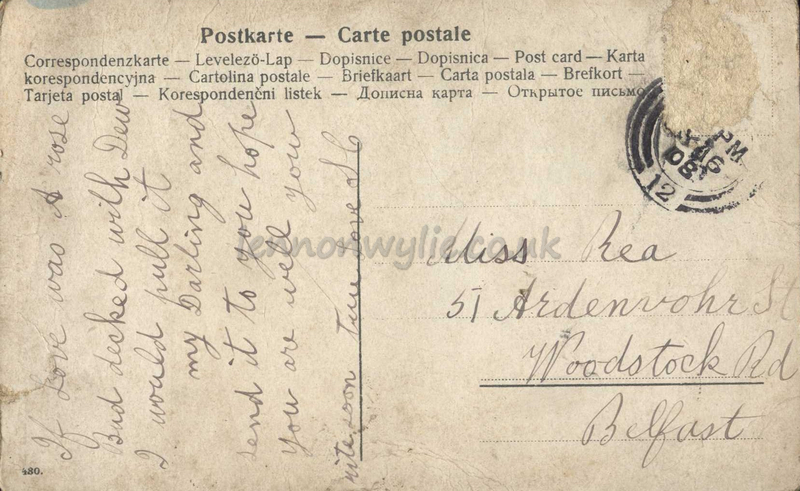 Postkarte — Carte postale
Correspondenzkarte — Levelező-Lap — Dopisnice — Dopisnica — Post card — Karta
korespondencyjna — Cartolina postale — Briefkaart — Carta postala — Brefkort —
Tarjeta postal — Korespondenčni listek — Дописна карта — Открытое письмо
PM
12
If Love was A rose
Bud decked with Dew
I would pull it
my Darling and
send it to you hope
you are well you
rite soon True Love
lennonwylie.co.uk
Miss Rea
51 Ardenvohr St
Woodstock Rd
Belfast
480.